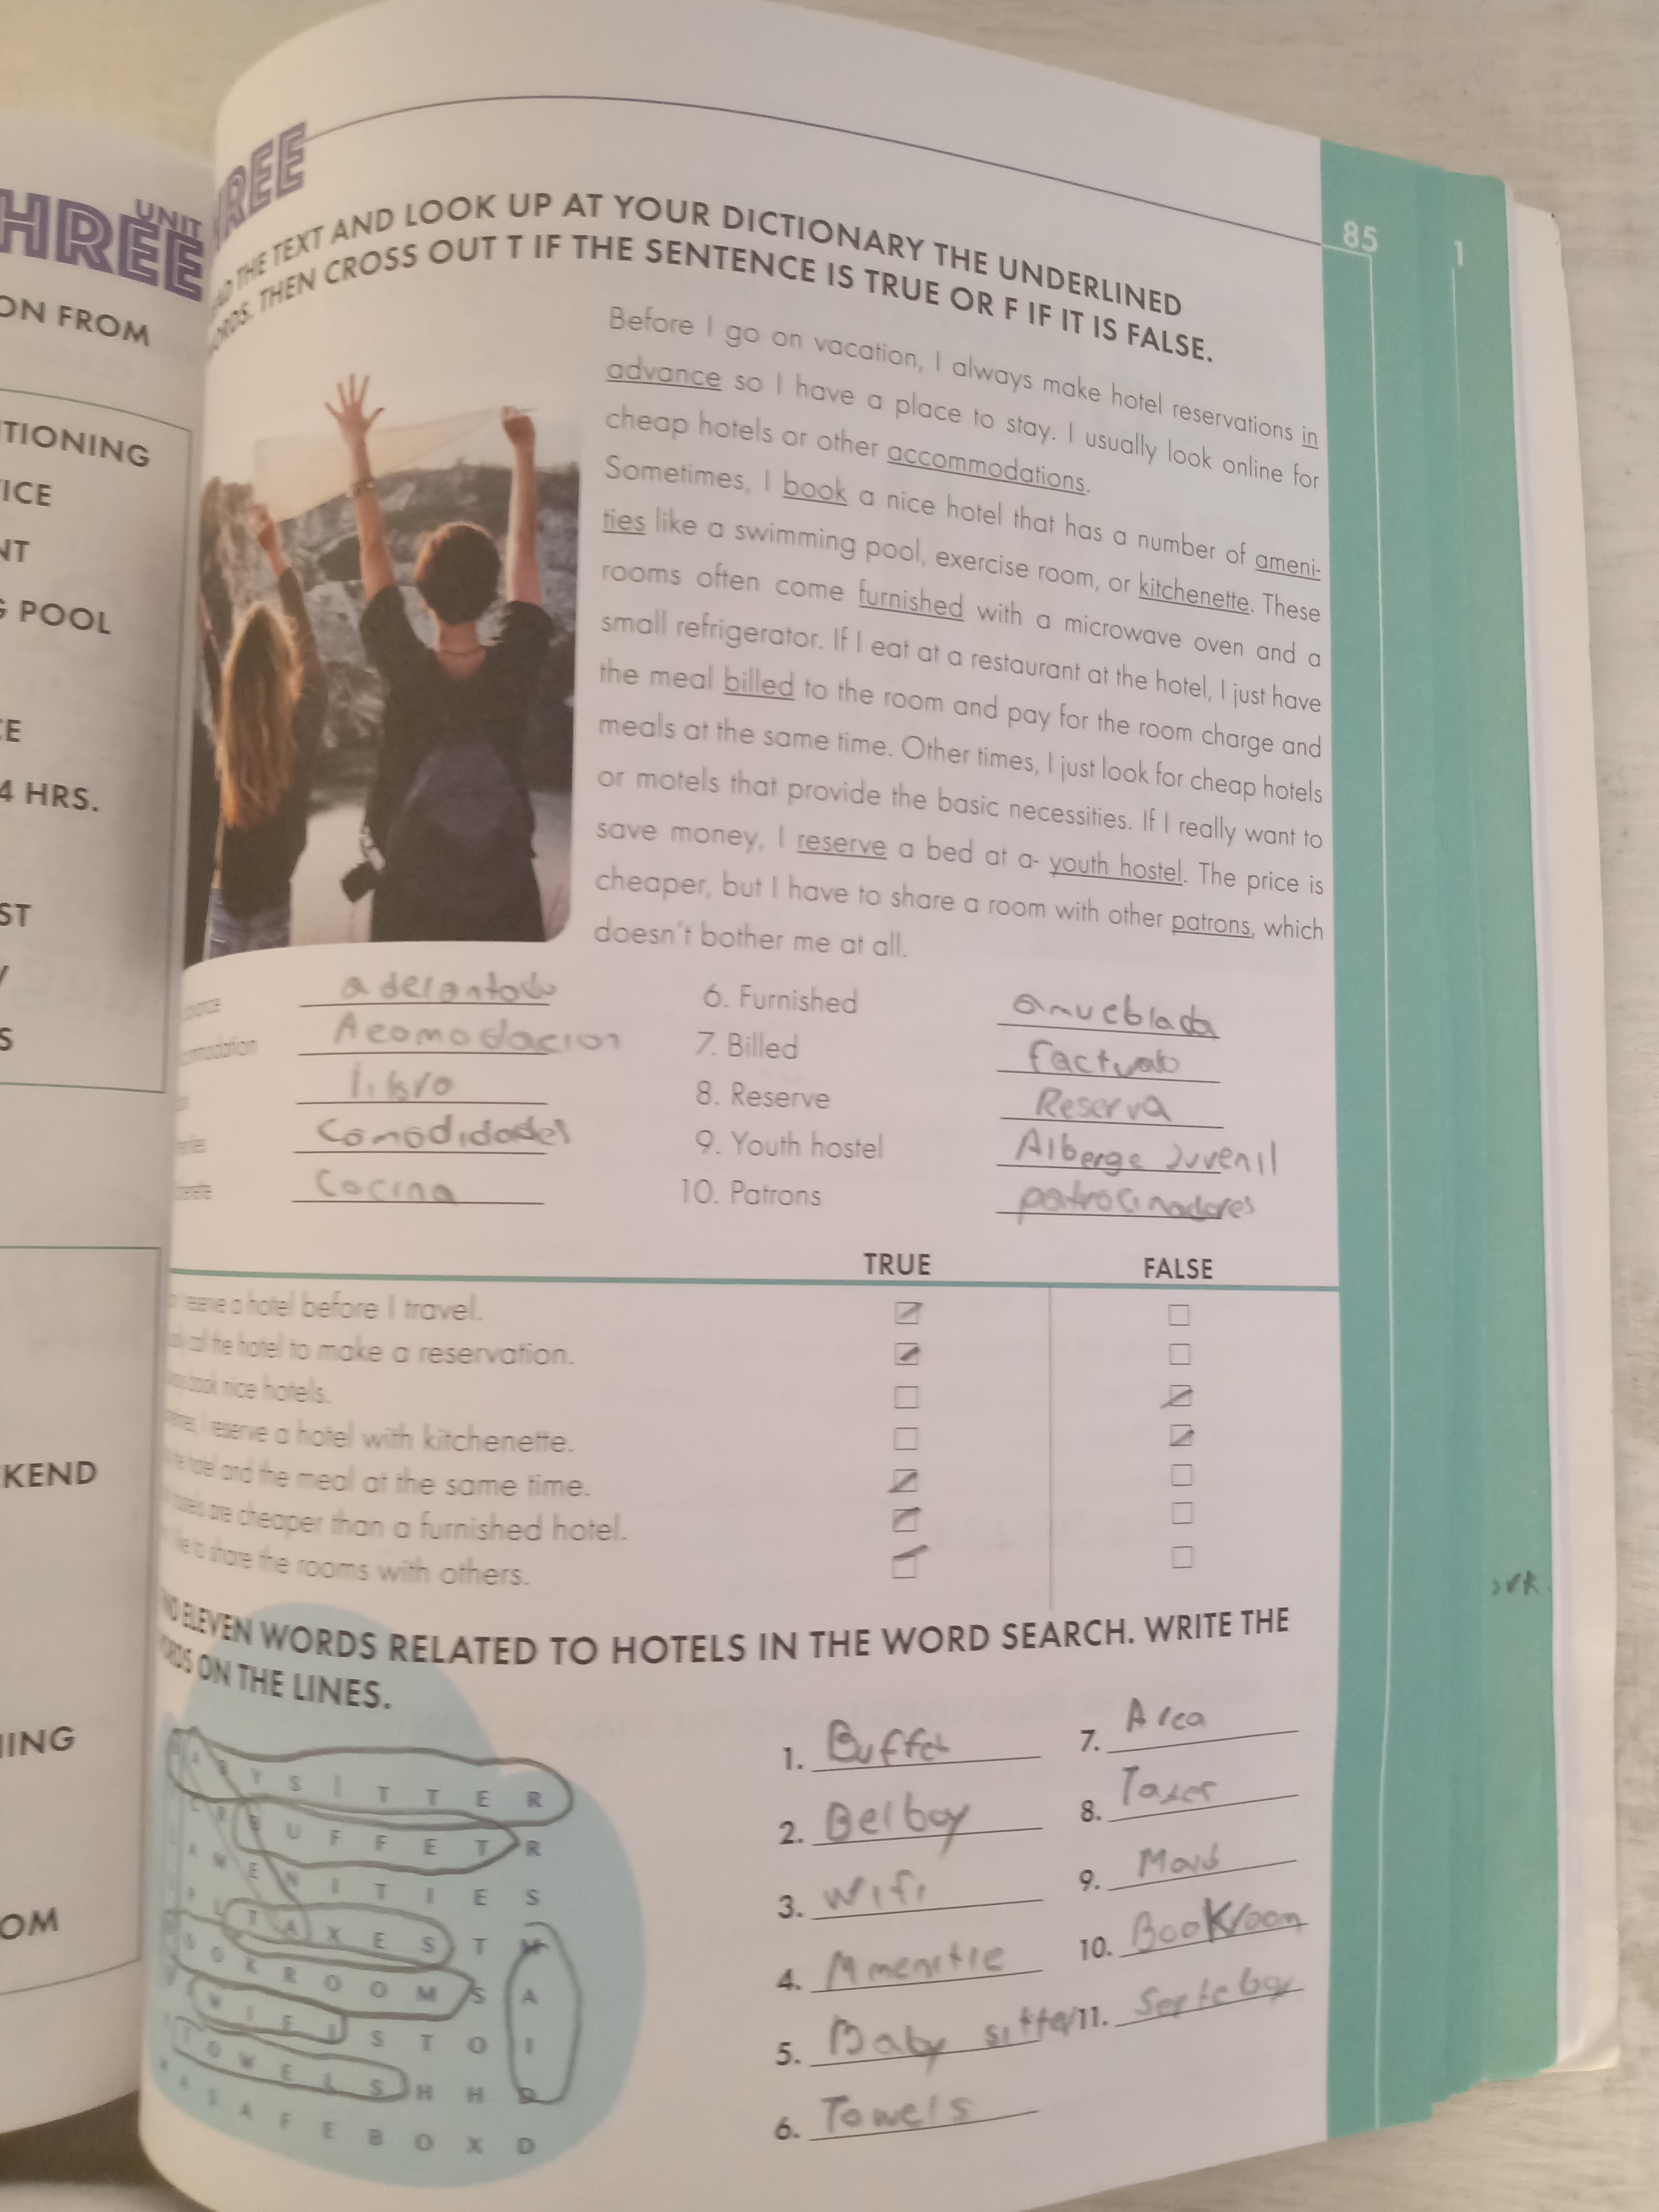 UNIT
HREE
ON FROM
TIONING
ICE
NT
POOL
CE
4 HRS.
ST
Y
S
KEND
ING
OM
REE
85
1
THE TEXT AND LOOK UP AT YOUR DICTIONARY THE UNDERLINED
ORDS. THEN CROSS OUT T IF THE SENTENCE IS TRUE OR F IF IT IS FALSE.
Before I go on vacation, I always make hotel reservations in
advance so I have a place to stay. I usually look online for
cheap hotels or other accommodations.
Sometimes, I book a nice hotel that has a number of ameni-
ties like a swimming pool, exercise room, or kitchenette. These
rooms often come furnished with a microwave oven and a
small refrigerator. If I eat at a restaurant at the hotel, I just have
the meal billed to the room and pay for the room charge and
meals at the same time. Other times, I just look for cheap hotels
or motels that provide the basic necessities. If I really want to
save money, I reserve a bed at a- youth hostel. The price is
cheaper, but I have to share a room with other patrons, which
doesn't bother me at all.
adelantado
Acomodacion
libro
Comodidades
Cocina
6. Furnished amueblada
7. Billed facturado
8. Reserve Reserva
9. Youth hostel Alberge Juvenil
10. Patrons patrocinadores
TRUE FALSE
a hotel before I travel.
the hotel to make a reservation.
nice hotels.
I reserve a hotel with kitchenette.
and the meal at the same time.
are cheaper than a furnished hotel.
to share the rooms with others.
ELEVEN WORDS RELATED TO HOTELS IN THE WORD SEARCH. WRITE THE
ON THE LINES.
A B Y S I T T E R
R B U F F E T R
A M E N I T I E S
P L T A X E S T M
O O K R O O M S A
W I F I S T O I
T O W E L S H H D
A S A F E B O X D
1. Buffet
2. Belboy
3. Wifi
4. Amenitie
5. Baby sitter
6. Towels
7. Area
8. Taxes
9. Maid
10. Bookroom
11.
ork.